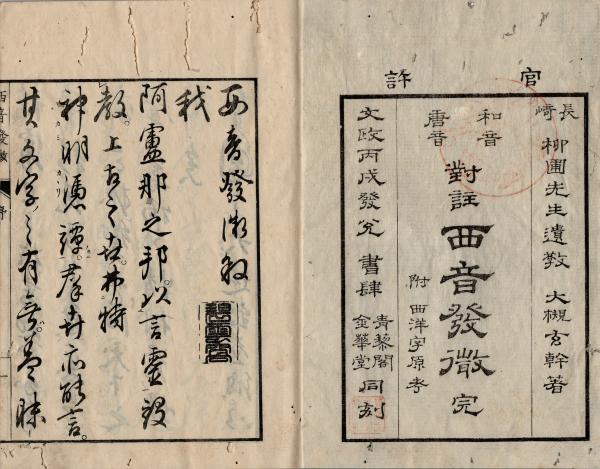 官許
長崎 柳圃先生遺教 大槻玄幹著
和音
唐音
對註 西音發微 完
附 西洋字原考
文政丙戌發兌 書肆 青藜閣 金華堂 同刻
西音發微叙
我
阿盧那之邦。以言靈設
教。上古之世。弗特
神明憑譚。群卉亦能言。
其文字之有無。蓋昧
西音發微 序